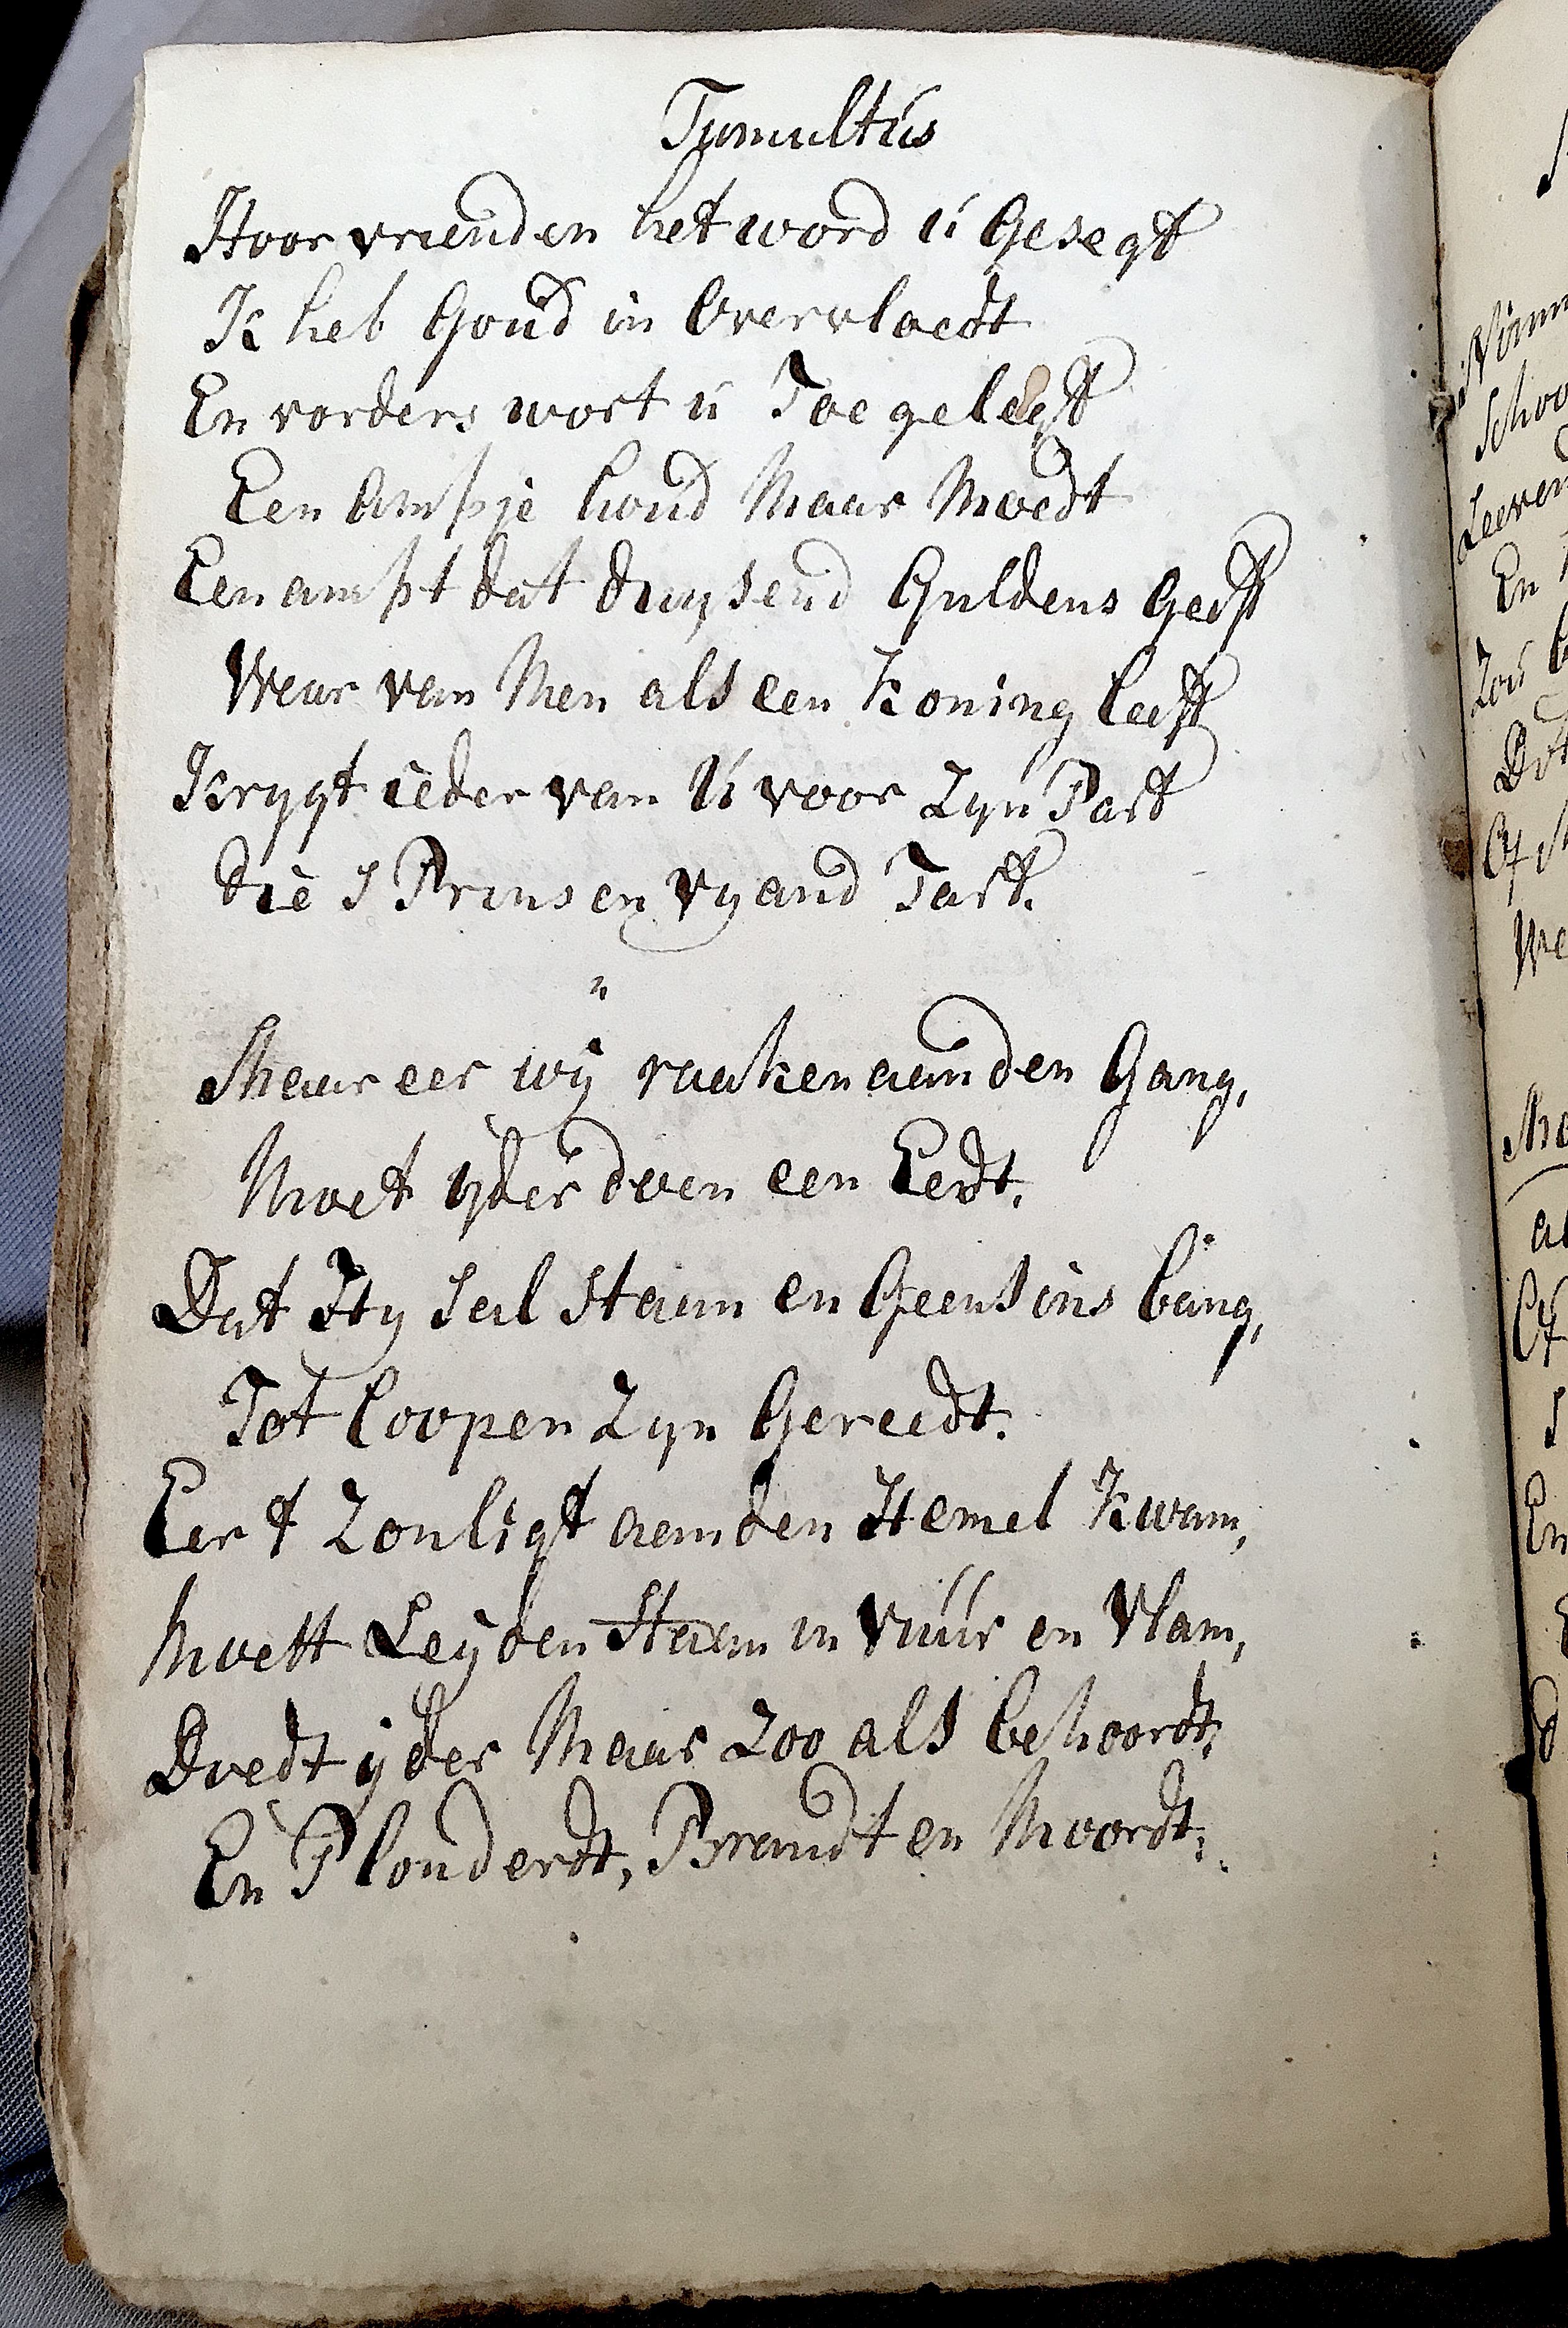 Tumultús
Hoor vrienden het word ú Gesegt
Ik heb Goúd in Overvloedt
En vorders wort ú Toe gelegt
Een Ampje houd Maar Moedt
Een ampt dat duysend Guldens Geeft
Waar van Men als een Koning leeft
Krygt ieder van ú voor Zyn Part
die S Prinsen vyand Tart.
2
Maar eer wÿ raaken aan den Gang,
Moet yder doen een Eedt.
Dat Hy Sal Staan en Geensins bang,
Tot loopen Zyn Gereedt.
Eer t Zonligt aan den Hemel Kwam,
Moett Leyden Staan in Vúúr en Vlam,
Doedt yder Maar Zoo als behoordt,
En Plonderdt, Brandt en Moordt.